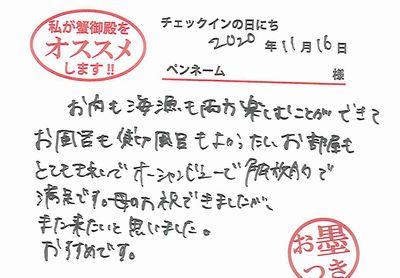 私が蟹御殿を
オススメ
します!!
チェックインの日にち
2020年11月16日
ペンネーム 様
お肉も海漁も両方楽しむことができて
お風呂も貸切風呂もよかったしお部屋も
とてもきれいでオーシャンビューで解放的で
満足です。母のお祝できましたが、
また来たいと思いました。
おすすめです。
お墨
つき